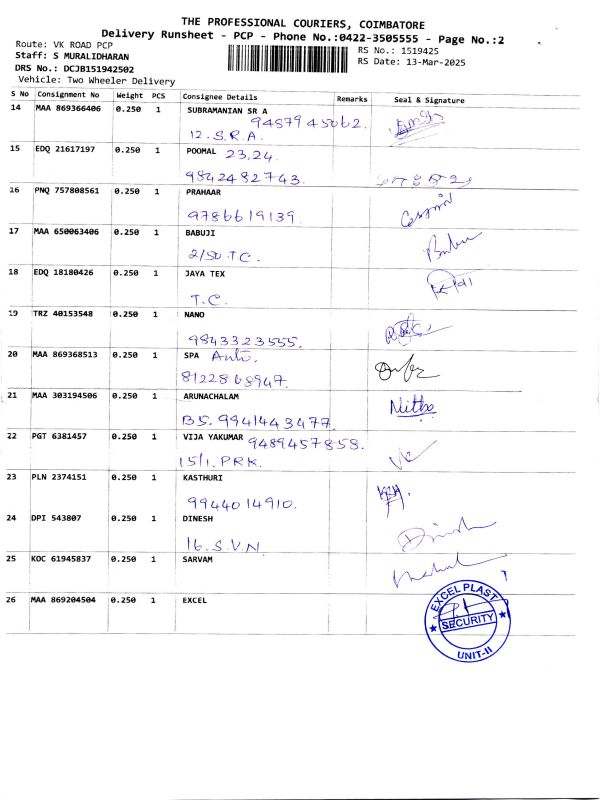 THE PROFESSIONAL COURIERS, COIMBATORE
Delivery Runsheet - PCP - Phone No.:0422-3505555 - Page No.:2
Route: VK ROAD PCP
RS No.: 1519425
Staff: S MURALIDHARAN
RS Date: 13-Mar-2025
DRS No.: DCJB151942502
Vehicle: Two Wheeler Delivery
S No Consignment No Weight PCS Consignee Details Remarks Seal & Signature
14 MAA 869366406 0.250 1 SUBRAMANIAN SR A
9487945062.
12. S.R.A.
15 EDQ 21617197 0.250 1 POOMAL 23,24.
9842482743.
16 PNQ 757808561 0.250 1 PRAHAAR
9786619139.
17 MAA 650063406 0.250 1 BABUJI
2/50 T.C. Babu
18 EDQ 18180426 0.250 1 JAYA TEX
T.C.
19 TRZ 40153548 0.250 1 NANO
9843323555.
20 MAA 869368513 0.250 1 SPA Auto.
8122868947.
21 MAA 303194506 0.250 1 ARUNACHALAM
B5. 9941443477. Nitho
22 PGT 6381457 0.250 1 VIJA YAKUMAR 9489457858.
15/1. PRK. VK
23 PLN 2374151 0.250 1 KASTHURI
9944014910.
24 DPI 543807 0.250 1 DINESH
16. S.V.N. Dinesh
25 KOC 61945837 0.250 1 SARVAM
26 MAA 869204504 0.250 1 EXCEL
EXCEL PLAST
SECURITY
UNIT-II